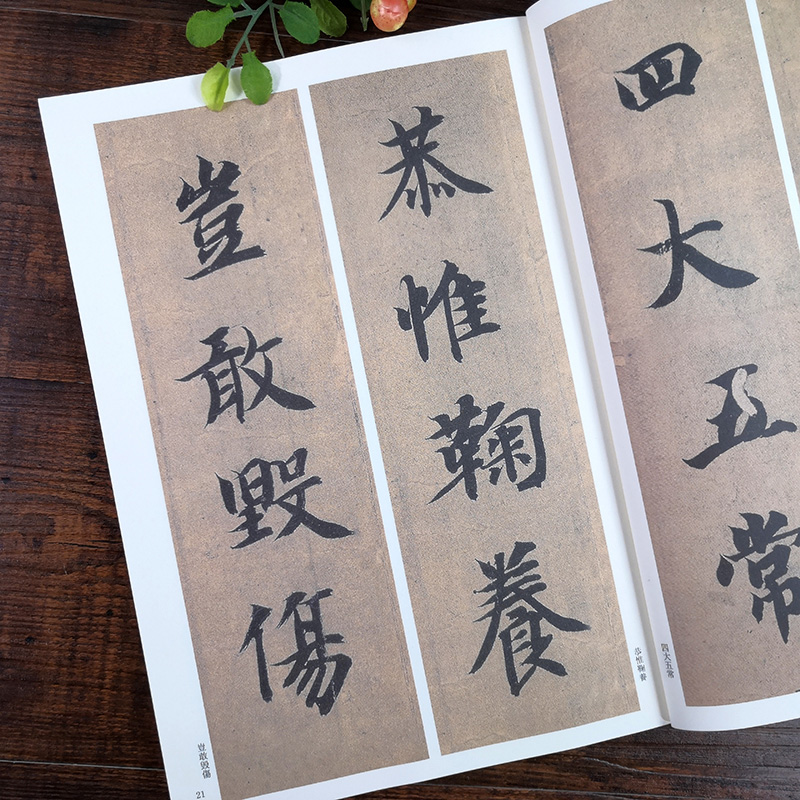 四大五常
恭惟鞠養
豈敢毀傷
四大五常
恭惟鞠養
豈敢毀傷
21